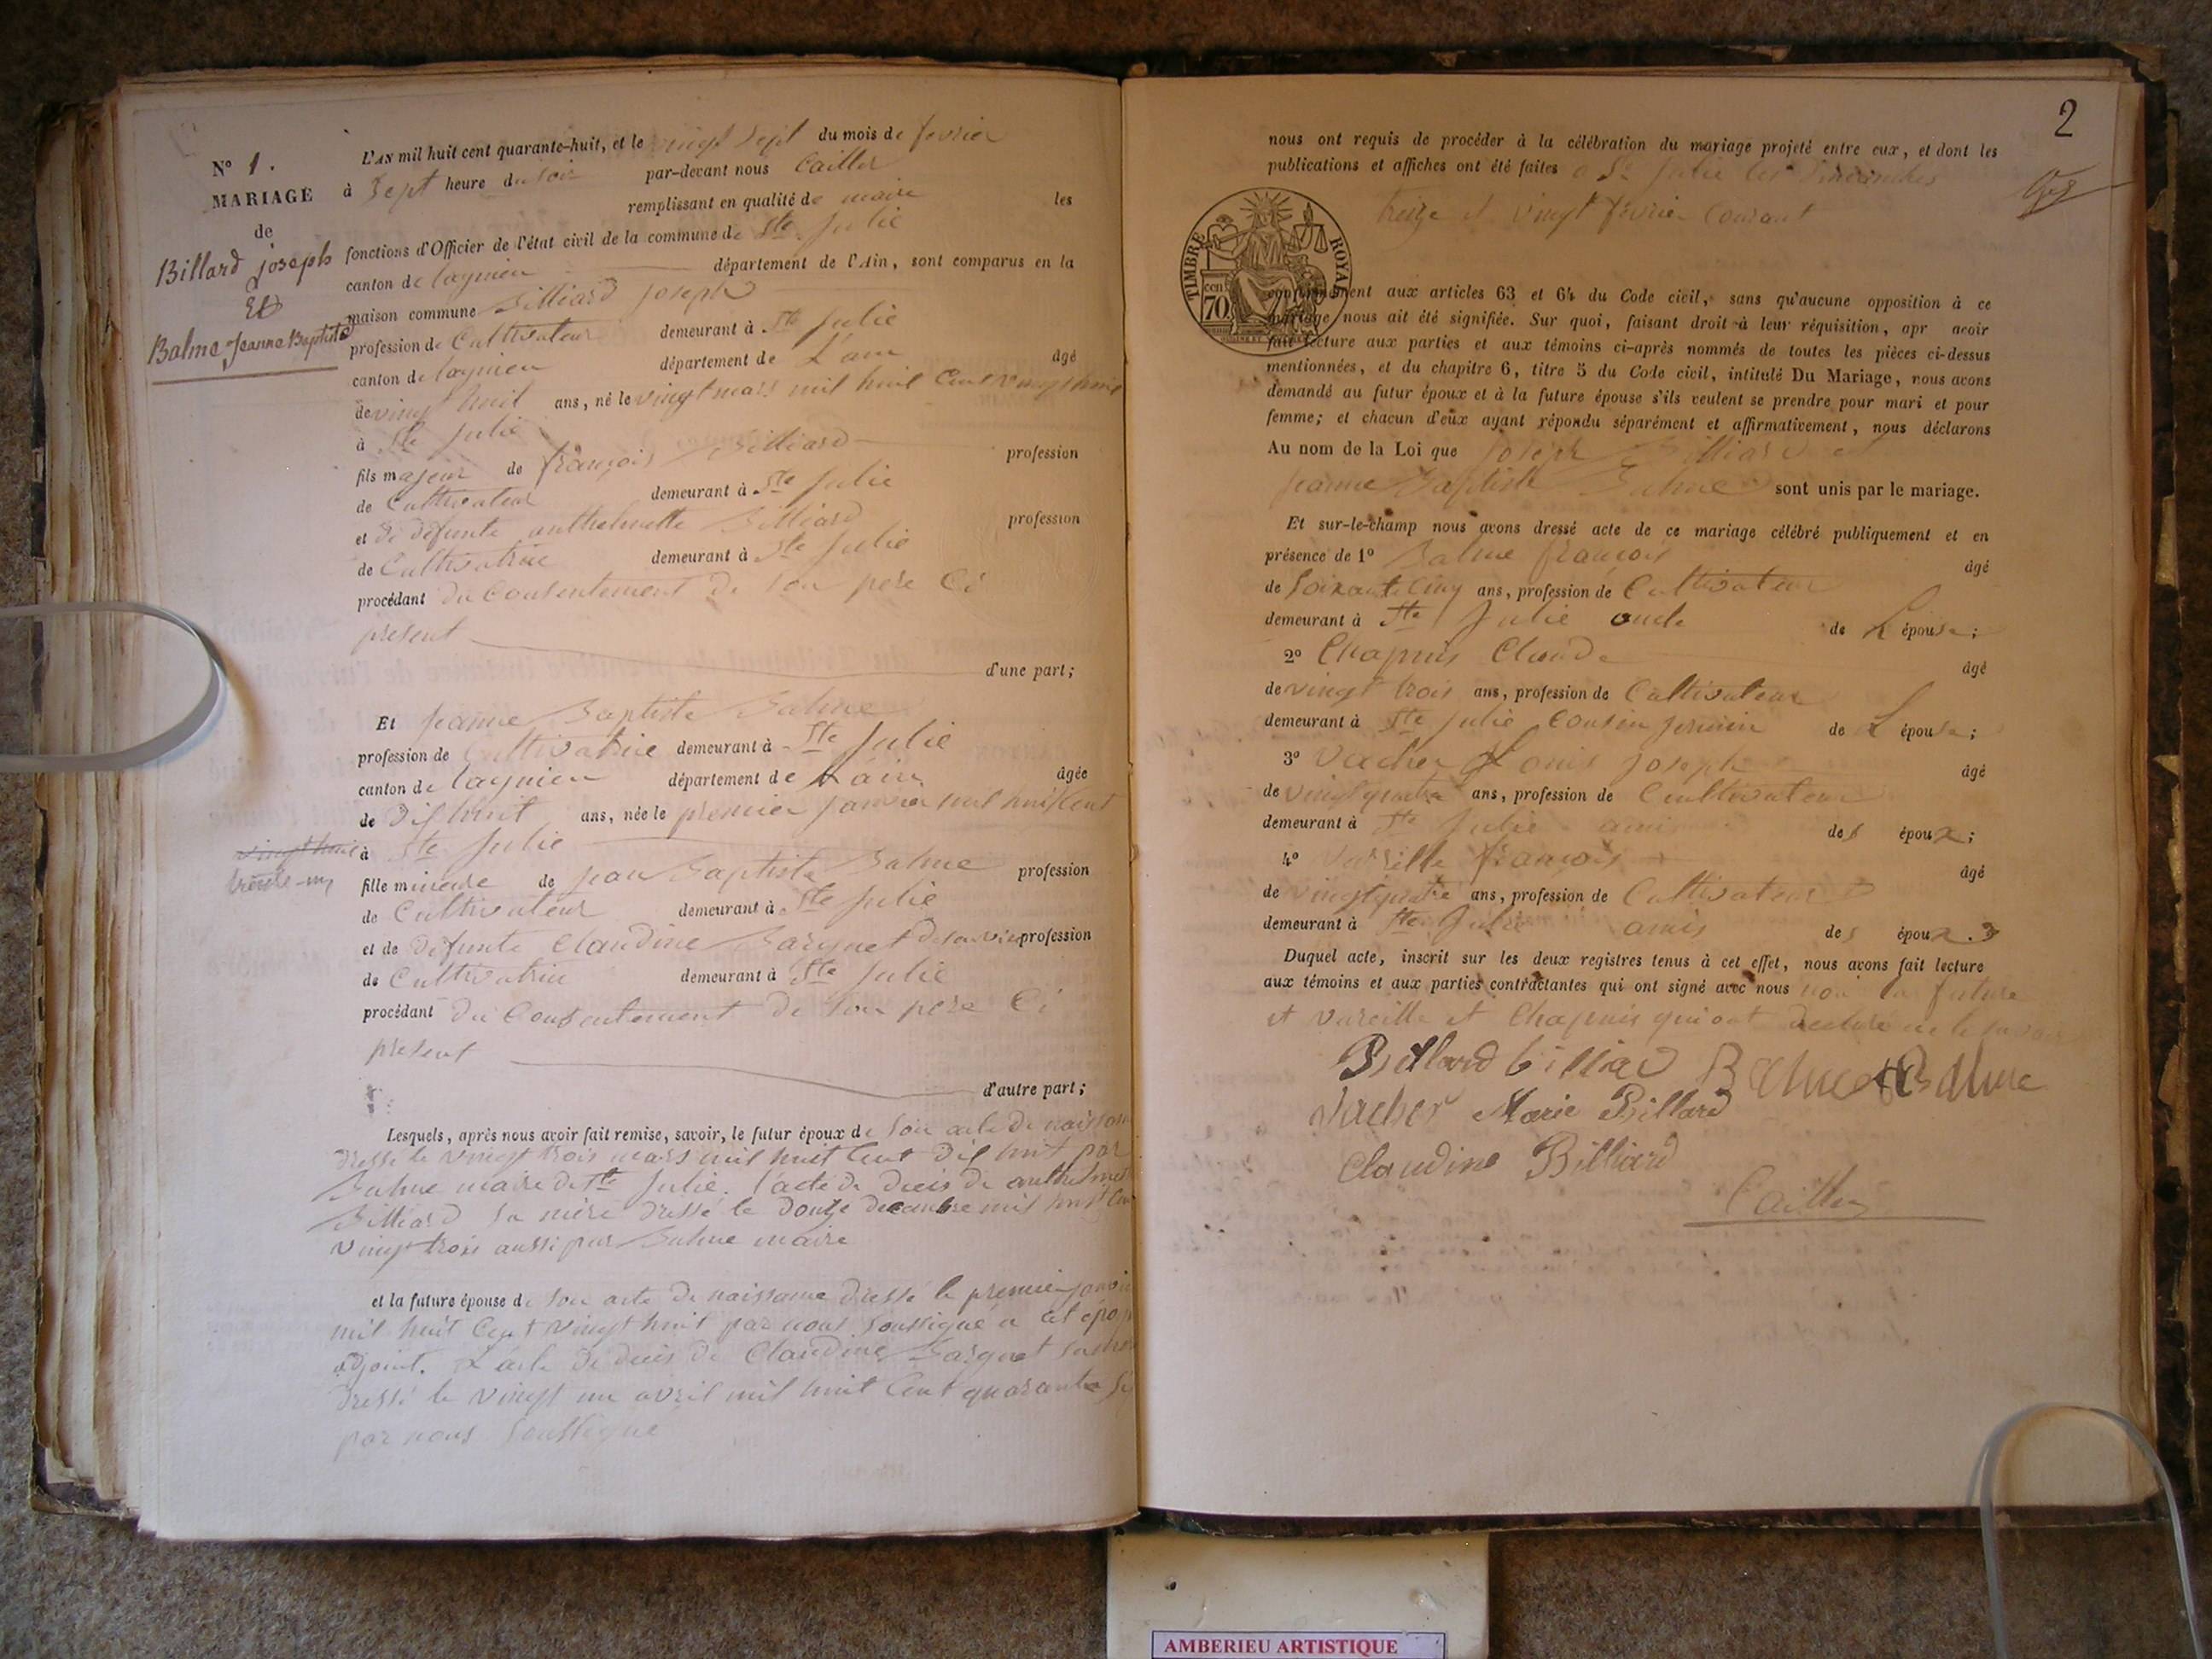 N° 1.
MARIAGE
de
Billard joseph
Et
Balme Jeanne Baptiste
L'AN mil huit cent quarante-huit, et le vingt sept du mois de fevrier
à Sept heure du soir par-devant nous Cailler
remplissant en qualité de maire les
fonctions d'Officier de l'état civil de la commune de Ste Julie
canton de lagnieu département de l'Ain, sont comparus en la
maison commune Billiard joseph
profession de Cultivateur demeurant à Ste Julie
canton de lagnieu département de L'ain âgé
de vingt huit ans, né le vingt mars mil huit Cent vingt huit
à Ste Julie
fils majeur de françois Billiard profession
de Cultivateur demeurant à Ste Julie
et de defunte anthelmette Billiard profession
de Cultivatrice demeurant à Ste Julie
procédant du Consentement de son pere Ci
présent
d'une part;
Et jeanne Baptiste Balme
profession de Cultivatrice demeurant à Ste Julie
canton de lagnieu département de L'ain âgée
de Dix huit ans, née le premier janvier mil huit Cent
vingt huit
trente-un
à Ste Julie
fille mineure de jean Baptiste Balme profession
de Cultivateur demeurant à Ste Julie
et de defunte Claudine Barquet de son vivant profession
de Cultivatrice demeurant à Ste Julie
procédant du Consentement de son pere Ci
présent
d'autre part;
Lesquels, après nous avoir fait remise, savoir, le futur époux de son acte de naissance
dressé le vingt trois mars mil huit Cent Dix huit par
Balme maire de Ste Julie. l'acte de deces de anthelmette
Billiard sa mère dressé le douze decembre mil huit Cent
vingt trois aussi par Balme maire
et la future épouse de son acte de naissance dressé le premier janvier
mil huit Cent vingt huit par nous soussigné a cet époque
adjoint. L'acte de deces de Claudine Barquet sa mère
dressé le vingt un avril mil huit Cent quarante
par nous soussigné
2
nous ont requis de procéder à la célébration du mariage projeté entre eux, et dont les
publications et affiches ont été faites a Ste Julie les Dimanches
treize et vingt fevrier Courant
TIMBRE ROYAL
70 cen
conformément aux articles 63 et 64 du Code civil, sans qu'aucune opposition à ce
mariage nous ait été signifiée. Sur quoi, faisant droit à leur réquisition, apr avoir
fait lecture aux parties et aux témoins ci-après nommés de toutes les pièces ci-dessus
mentionnées, et du chapitre 6, titre 5 du Code civil, intitulé Du Mariage, nous avons
demandé au futur époux et à la future épouse s'ils veulent se prendre pour mari et pour
femme; et chacun d'eux ayant répondu séparément et affirmativement, nous déclarons
Au nom de la Loi que joseph Billiard et
jeanne Baptiste Balme sont unis par le mariage.
Et sur-le-champ nous avons dressé acte de ce mariage célébré publiquement et en
présence de 1° Balme françois âgé
de Soixante Cinq ans, profession de Cultivateur
demeurant à Ste Julie oncle de L épouse;
2° Chapuis Claude âgé
de vingt trois ans, profession de Cultivateur
demeurant à Ste Julie Cousin jermin de L épouse;
3° Vacher Louis joseph âgé
de vingt quatre ans, profession de Cultivateur
demeurant à Ste Julie ami des époux;
4° Vareille françois âgé
de vingt quatre ans, profession de Cultivateur
demeurant à Ste Julie amis des époux.
Duquel acte, inscrit sur les deux registres tenus à cet effet, nous avons fait lecture
aux témoins et aux parties contractantes qui ont signé avec nous non la future
et Vareille et Chapuis qui ont declaré ne le savoir
Billard billiard Balme Balme
Vacher Marie Billard
Claudine Billiard
Cailler
AMBERIEU ARTISTIQUE